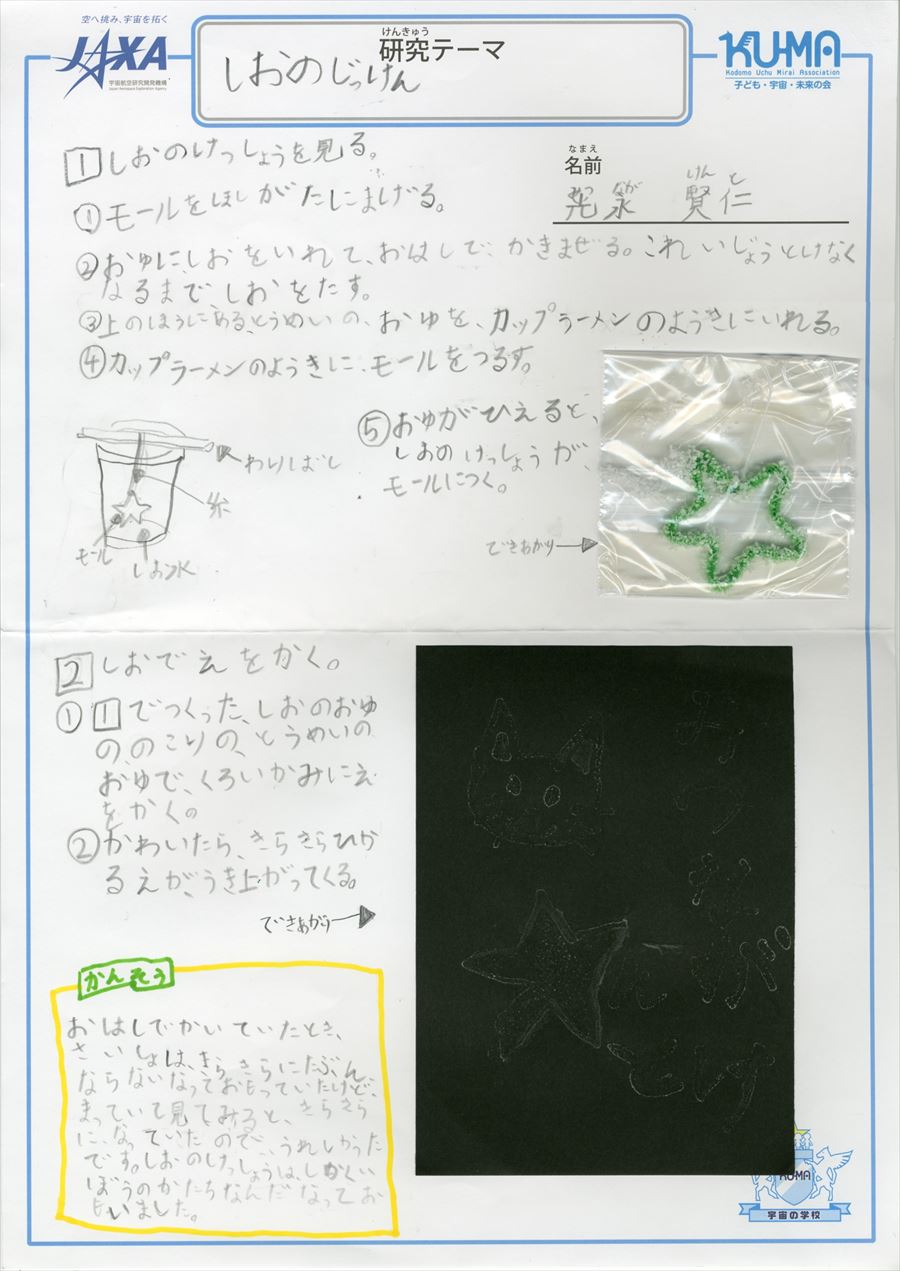 空へ挑み、宇宙を拓く
JAXA
宇宙航空研究開発機構
Japan Aerospace Exploration Agency
けんきゅう
研究テーマ
しおのじっけん
KU-MA
Kodomo Uchu Mirai Association
子ども・宇宙・未来の会
なまえ
名前
なが けん と
永 賢仁
1 しおのけっしょうを見る。
① モールをほしがたにまげる。
② おゆに、しおをいれて、おはしで、かきまぜる。これいじょうとけなく
なるまで、しおをたす。
③ 上のほうにある、とうめいの、おゆを、カップラーメンのようきにいれる。
④ カップラーメンのようきに、モールをつるす。
わりばし
糸
モール
しお水
⑤ おゆがひえると、
しおのけっしょうが、
モールにつく。
できあがり
2 しおでえをかく。
① 1でつくった、しおのおゆ
の、のこりの、とうめいの
おゆで、くろいかみにえ
をかく。
② かわいたら、きらきらひか
るえが、うき上がってくる。
できあがり
かんそう
おはしでかいていたとき、
さいしょは、きらきらにたぶん
ならないなっておもっていたけど、
まっていて見てみると、きらきら
に、なっていたので、うれしかった
です。しおのけっしょうは、しかくい
ぼうのかたちなんだなってお
もいました。
KU-MA
宇宙の学校